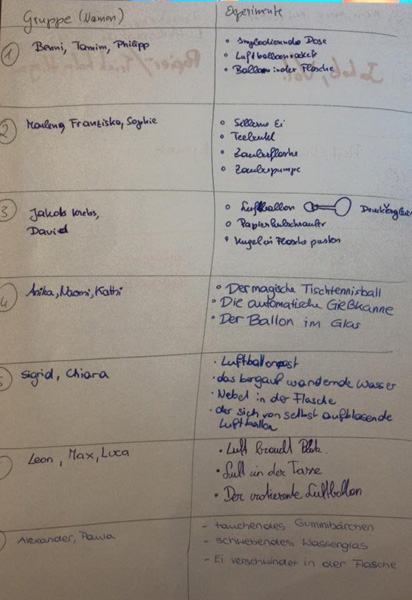 Gruppe (Namen)
Experimente
1
Benni, Tamim, Philipp
• Luftballonrakete
• Ballon in der Flasche
2
Marlene, Franziska, Sophie
• Seltsame Ei
• Teebeutel
• Zauberflasche
• Zauberpumpe
3
Jakob Krebs,
David
• Luftballon
• Papierhubschrauber
• Kugel in Flasche pusten
4
Anika, Naomi, Kathi
• Der magische Tischtennisball
• Die automatische Gießkanne
• Der Ballon im Glas
5
Sigrid, Chiara
• Luftballonpost
• das bergauf wandernde Wasser
• Nebel in der Flasche
• der sich von selbst aufblasende
Luftballon
Leon, Max, Luca
• Luft braucht Platz.
• Luft in der Tasse
• Der rotierende Luftballon
Alexander, Paula
- tauchendes Gummibärchen
- schwebendes Wasserglas
- Ei verschwindet in der Flasche